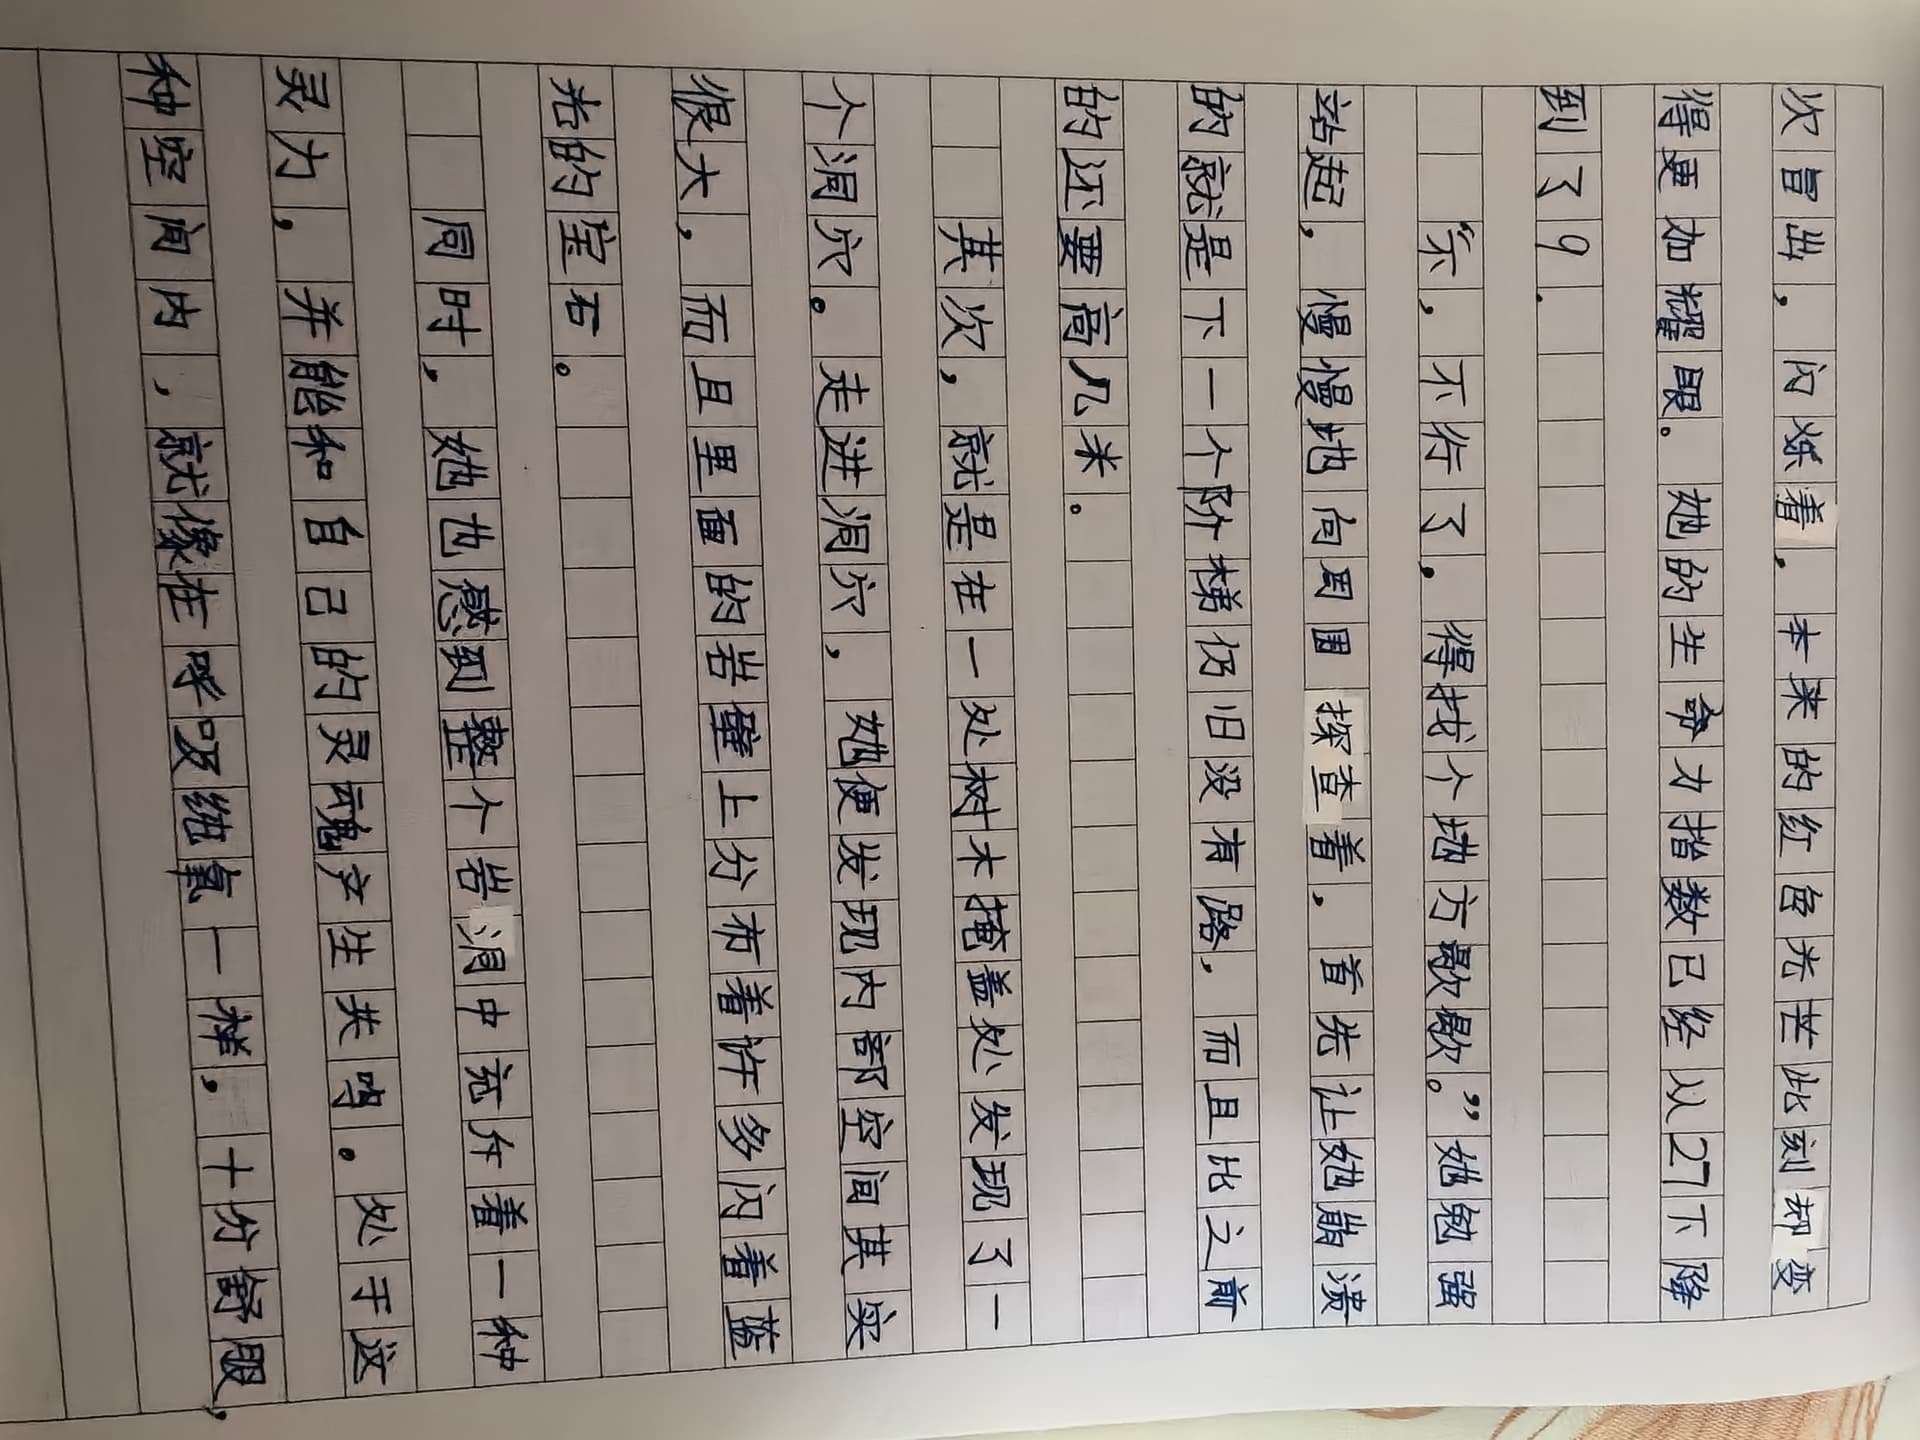 次冒出，闪烁着，本来的红色光芒此刻却变
得更加耀眼。她的生命力指数已经从27下降
到了9.
“不，不行了，得找个地方歇歇。”她勉强
站起，慢慢地向周围探查着，首先让她崩溃
的就是下一个阶梯仍旧没有路，而且比之前
的还要高几米。
其次，就是在一处树木掩盖处发现了一
个洞穴。走进洞穴，她便发现内部空间其实
很大，而且里面的岩壁上分布着许多闪着蓝
光的宝石。
同时，她也感到整个岩洞中充斥着一种
灵力，并能和自己的灵魂产生共鸣。处于这
种空间内，就像在呼吸纯氧一样，十分舒服，